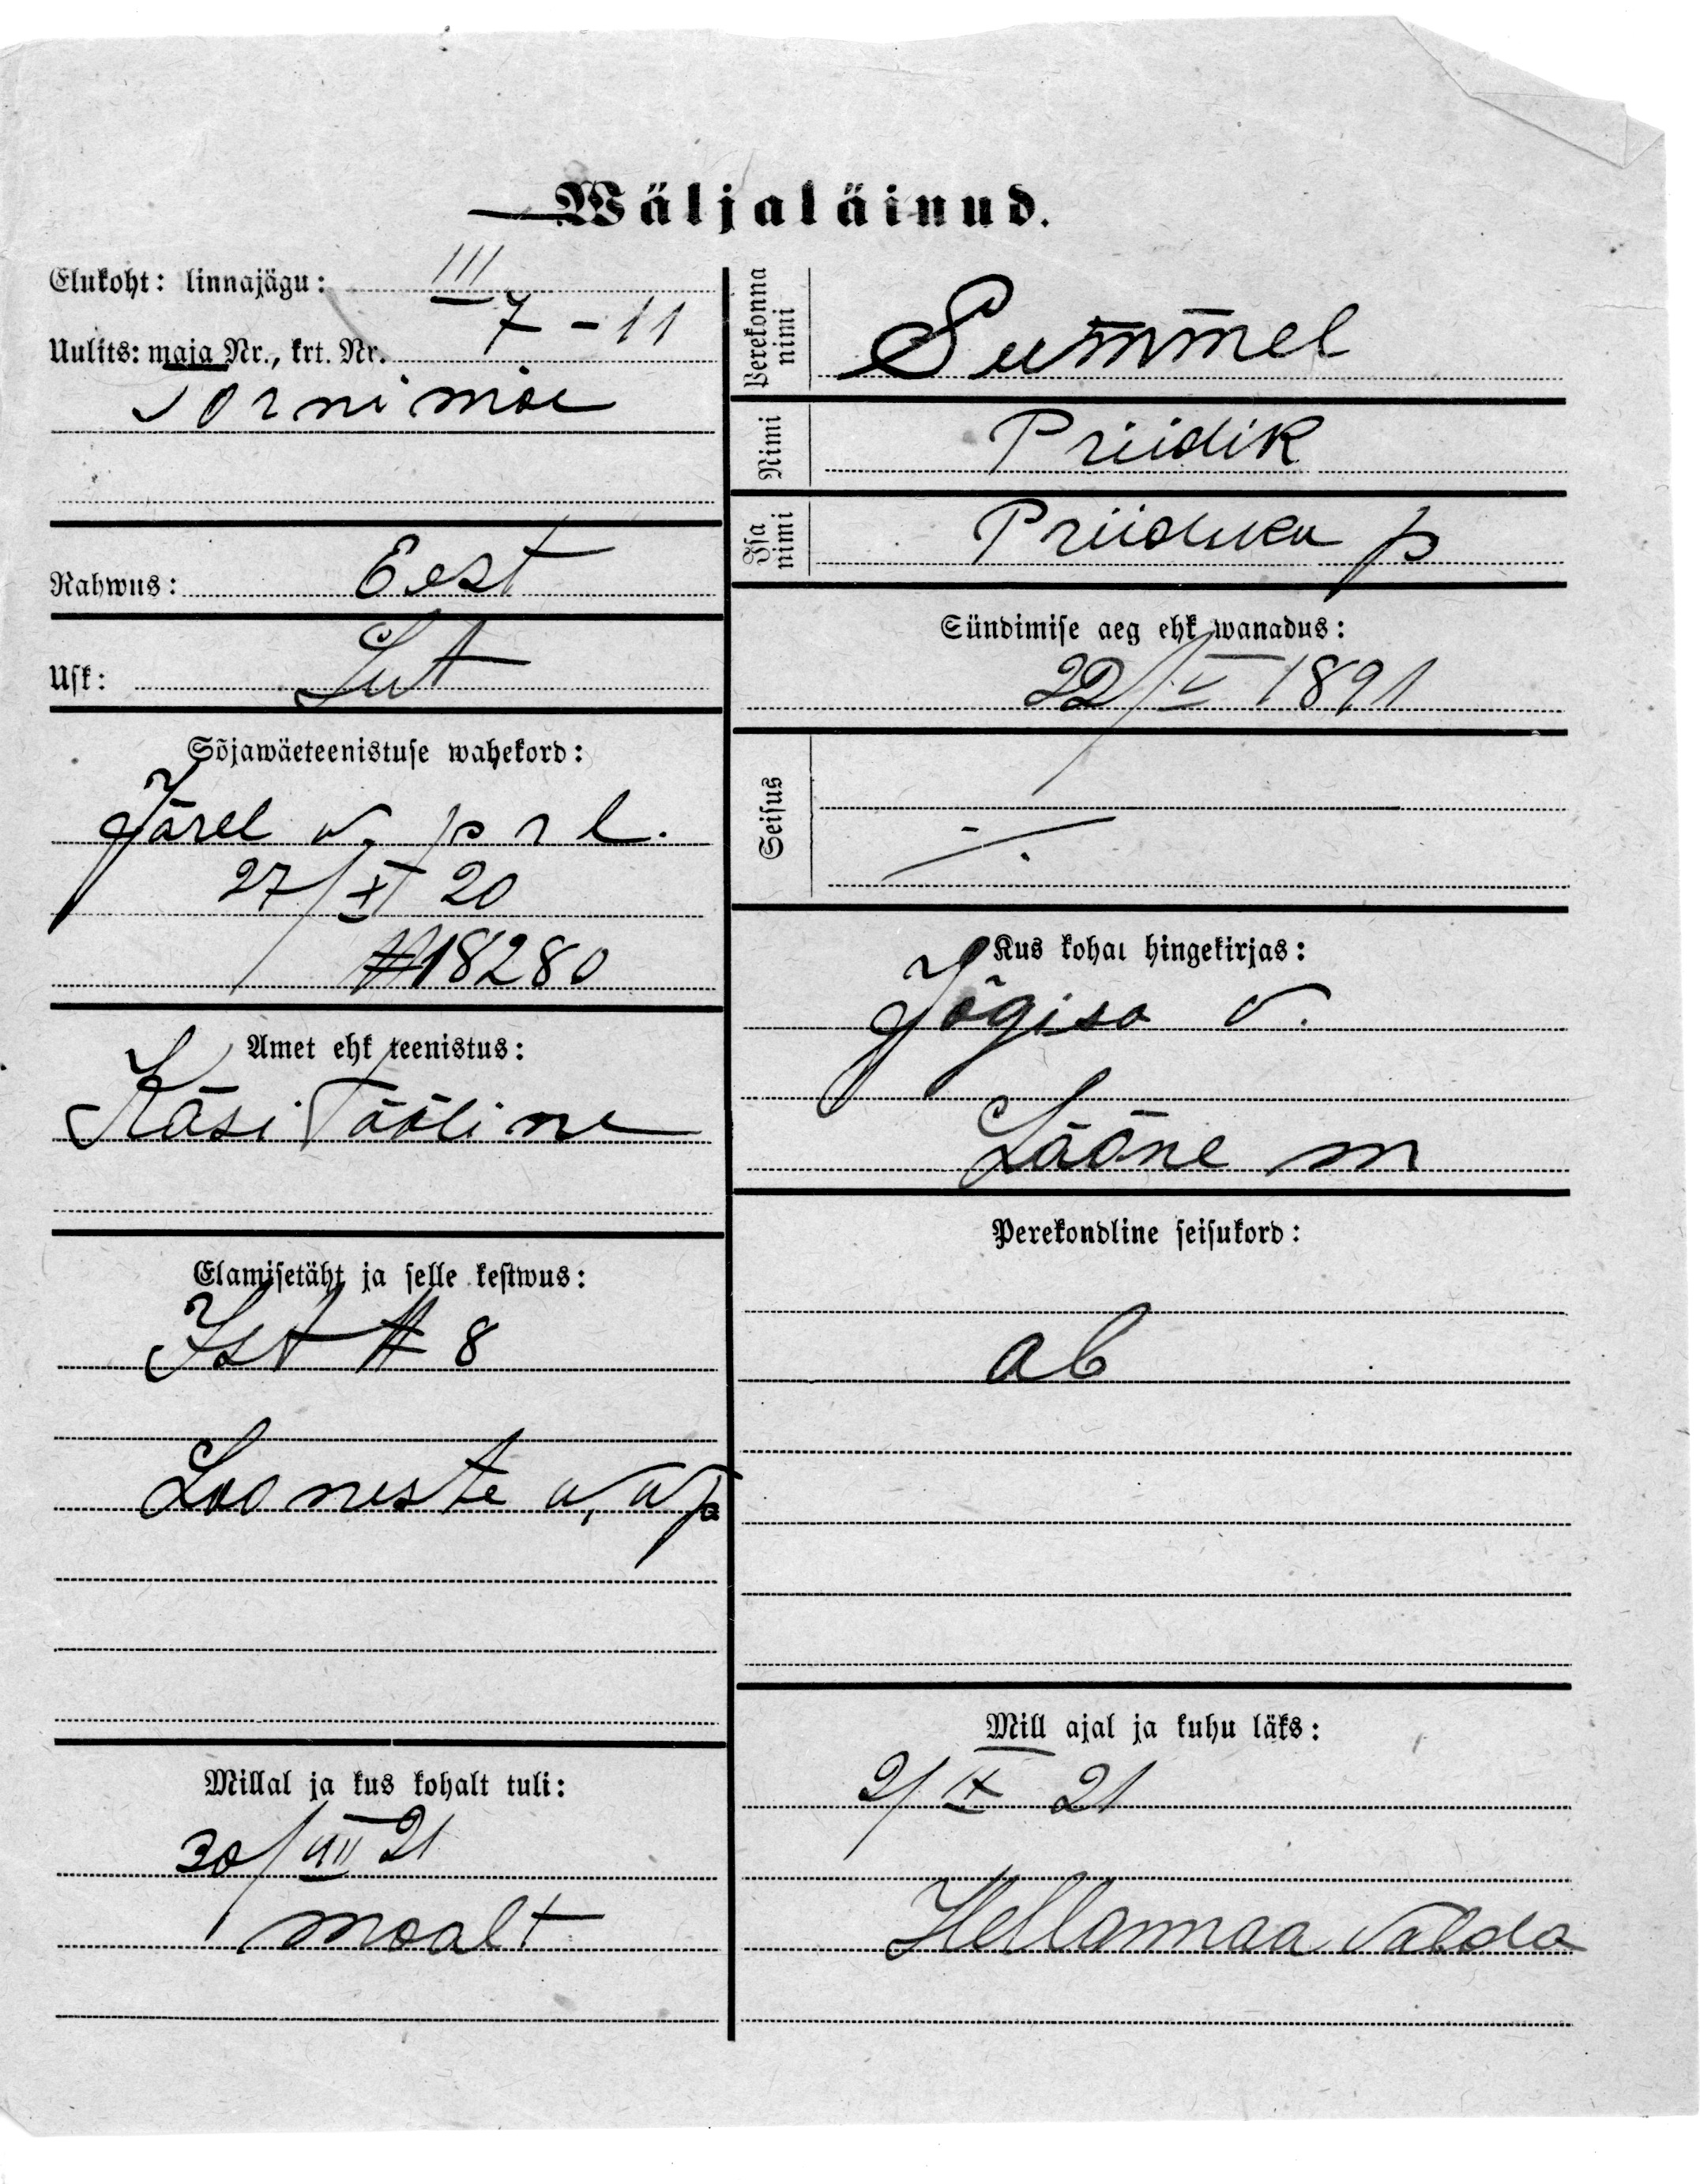 Wäljaläinud.
Elukoht: linnajägu: III
Uulits: maja Nr., krt. Nr. 7 - 11
Tornimäe
Rahwus: Eest
Usk: Lut
Sõjawäeteenistuse wahekord:
Järel w. p r l.
27/XI 20
№ 18280
Amet ehk teenistus:
Käsi Tööline
Elamisetäht ja selle kestwus:
Ist № 8
Looneste w, w p
Millal ja kus kohalt tuli:
30/VIII 21
maalt
Perekonna nimi Summel
Nimi Priidik
Isa nimi Priiduku p
Sündimise aeg ehk wanadus:
22/V 1891
Seisus
Kus kohal hingekirjas:
Jõgisо v.
Lääne m
Perekondline seisukord:
ab
Mill ajal ja kuhu läks:
2/IX 21
Hellamaa valda